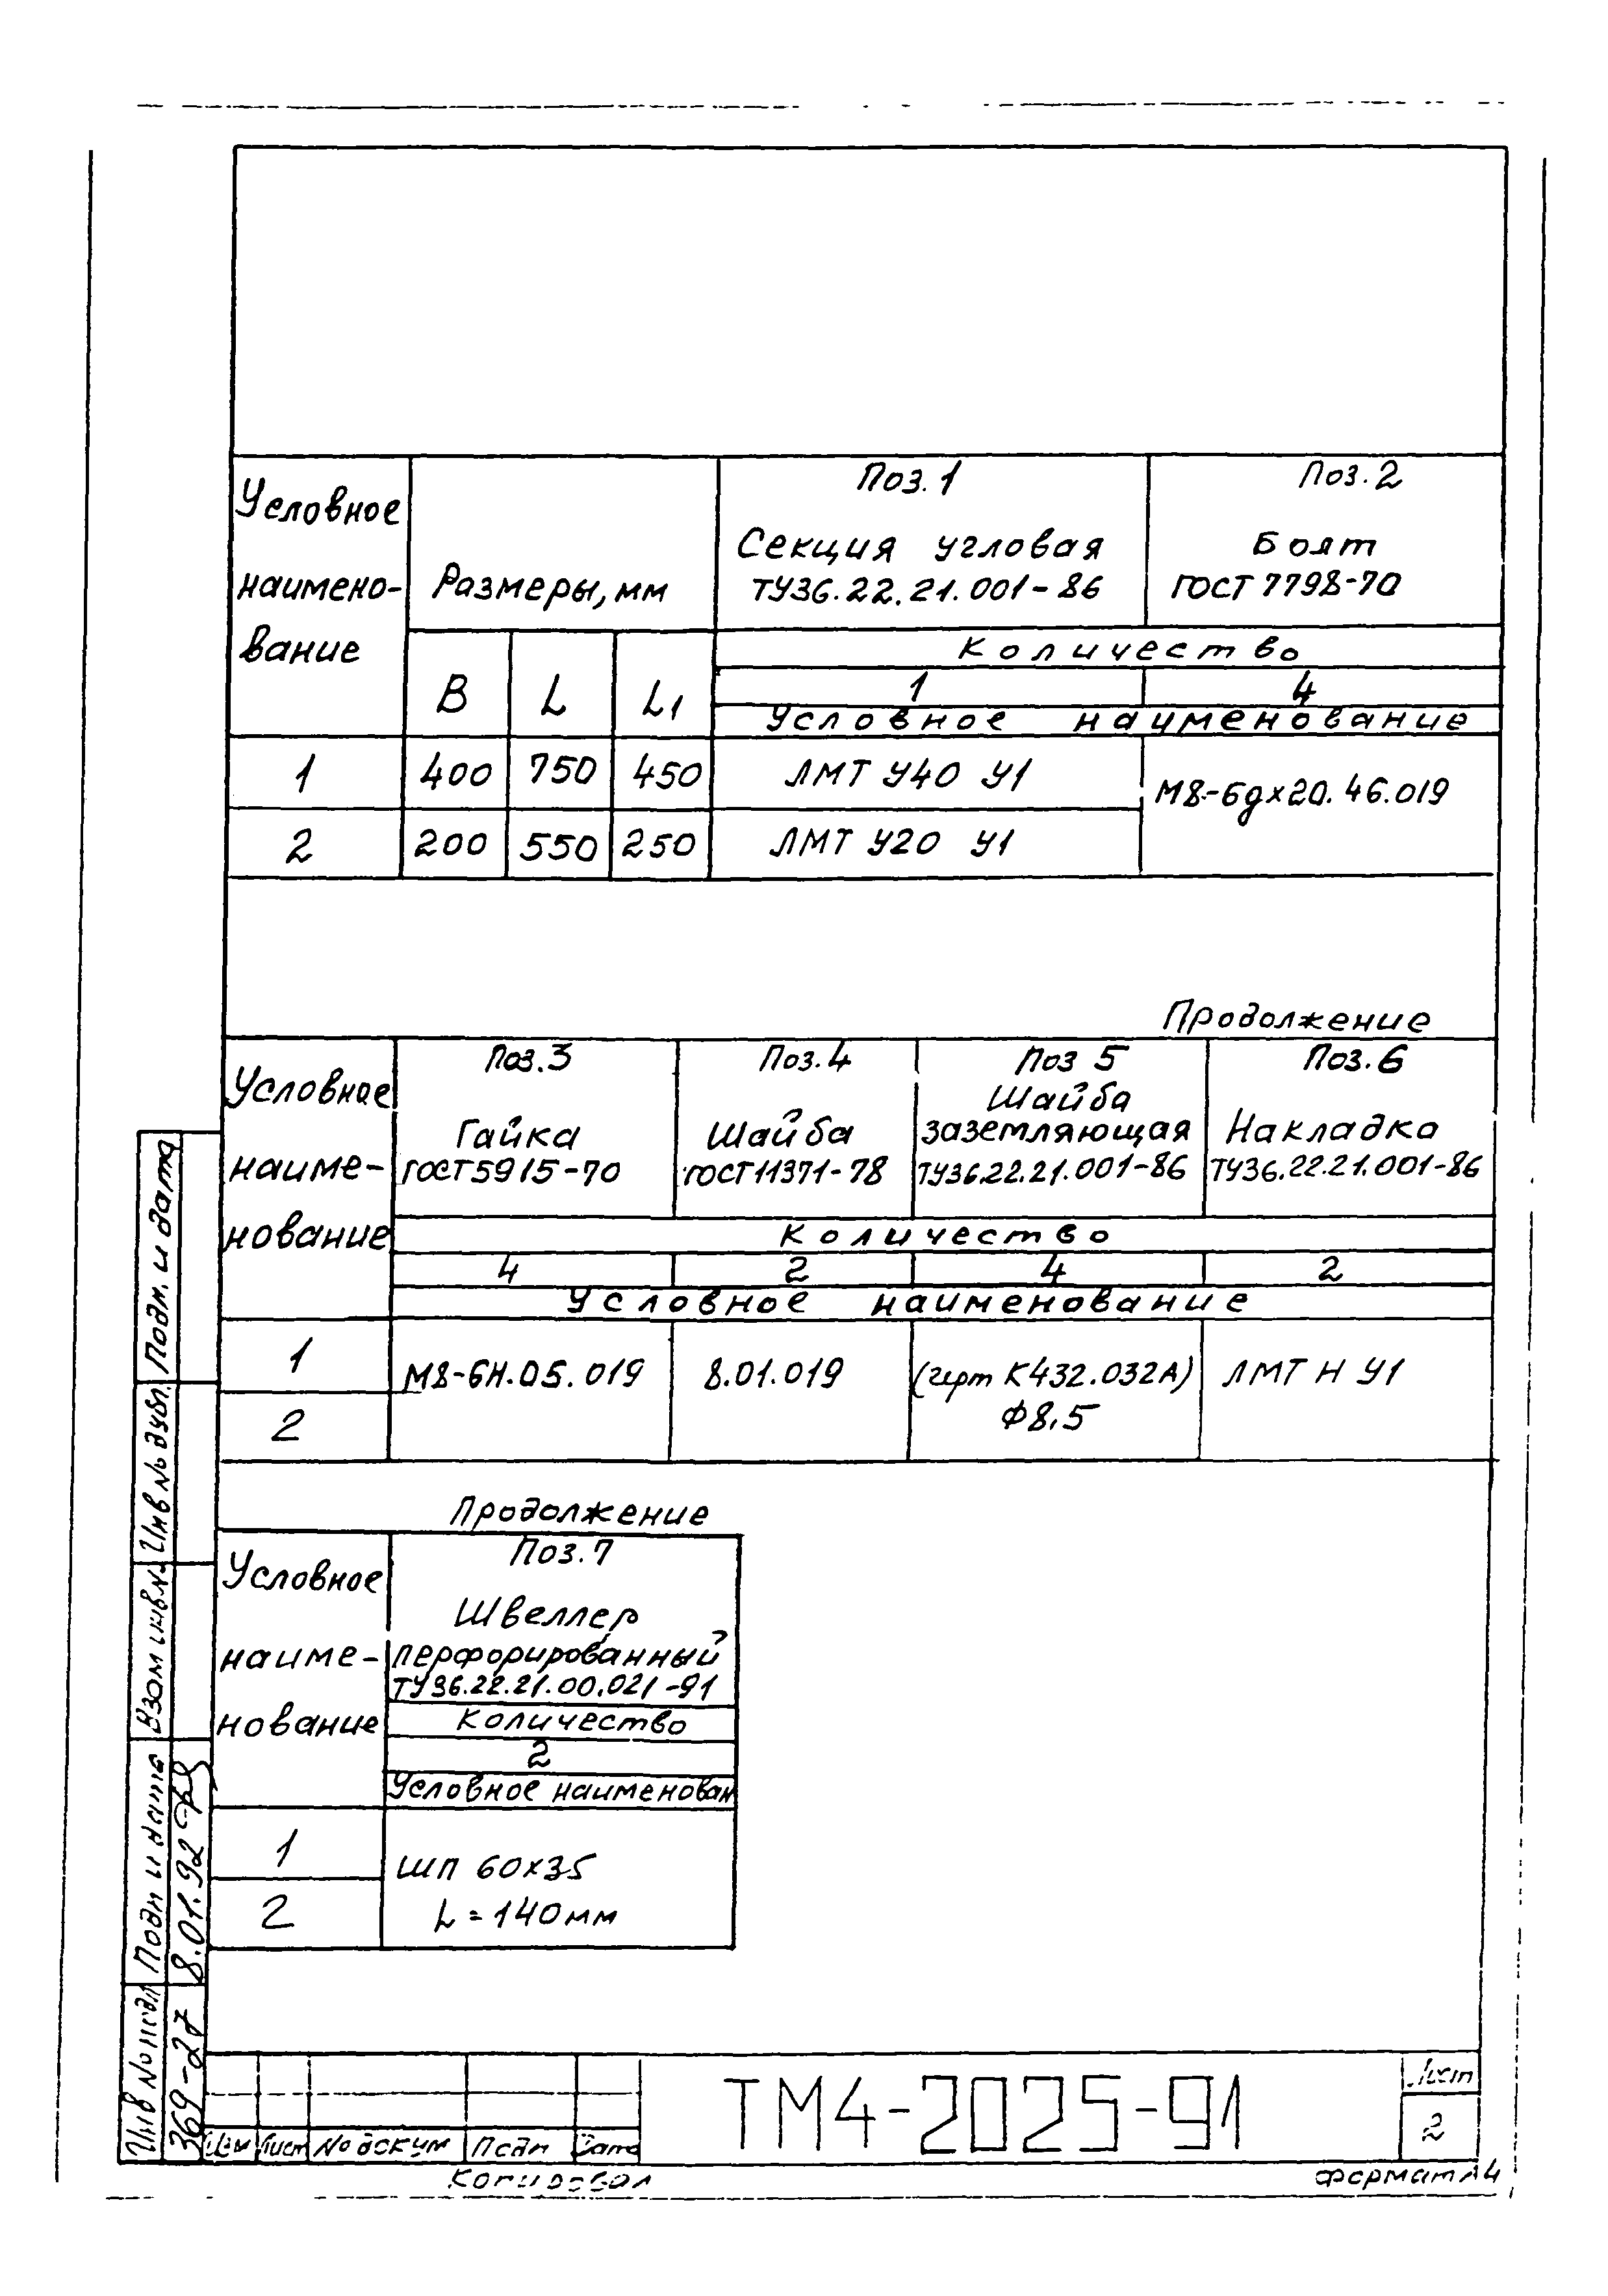 Условное наимено-вание
Размеры, мм
Поз.1
Секция угловая
ТУ36.22.21.001-86
Поз.2
Болт
ГОСТ 7798-70
Количество
B L L1
1 4
Условное наименование
1 400 750 450 ЛМТ У40 У1
М8-6gх20.46.019
2 200 550 250 ЛМТ У20 У1
Продолжение
Условное наиме-нование
Поз.3
Гайка
ГОСТ5915-70
Поз.4
Шайба
ГОСТ11371-78
Поз 5
Шайба
заземляющая
ТУ36.22.21.001-86
Поз.6
Накладка
ТУ36.22.21.001-86
Количество
4 2 4 2
Условное наименование
1
2
М8-6Н.05.019
8.01.019
(черт К432.032А)
Ф8,5
ЛМТ Н У1
Продолжение
Условное наиме-нование
Поз.7
Швеллер
перфорированный
ТУ36.22.21.00.021-91
Количество
2
Условное наименован
1
2
ШП 60х35
L=140мм
Подп. и дата
Инв № дубл.
Взам инв.№
Подп и дата
8.01.92
Инв № подл
369-27
Изм Лист № докум Подп Дата
ТМ4-2025-91
Лист
2
Копировал
формат А4